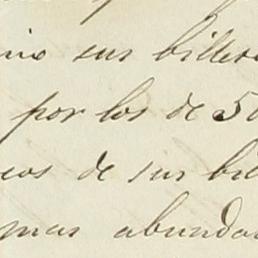 sus billetes
por los de 50
de sus bil
mas abundan